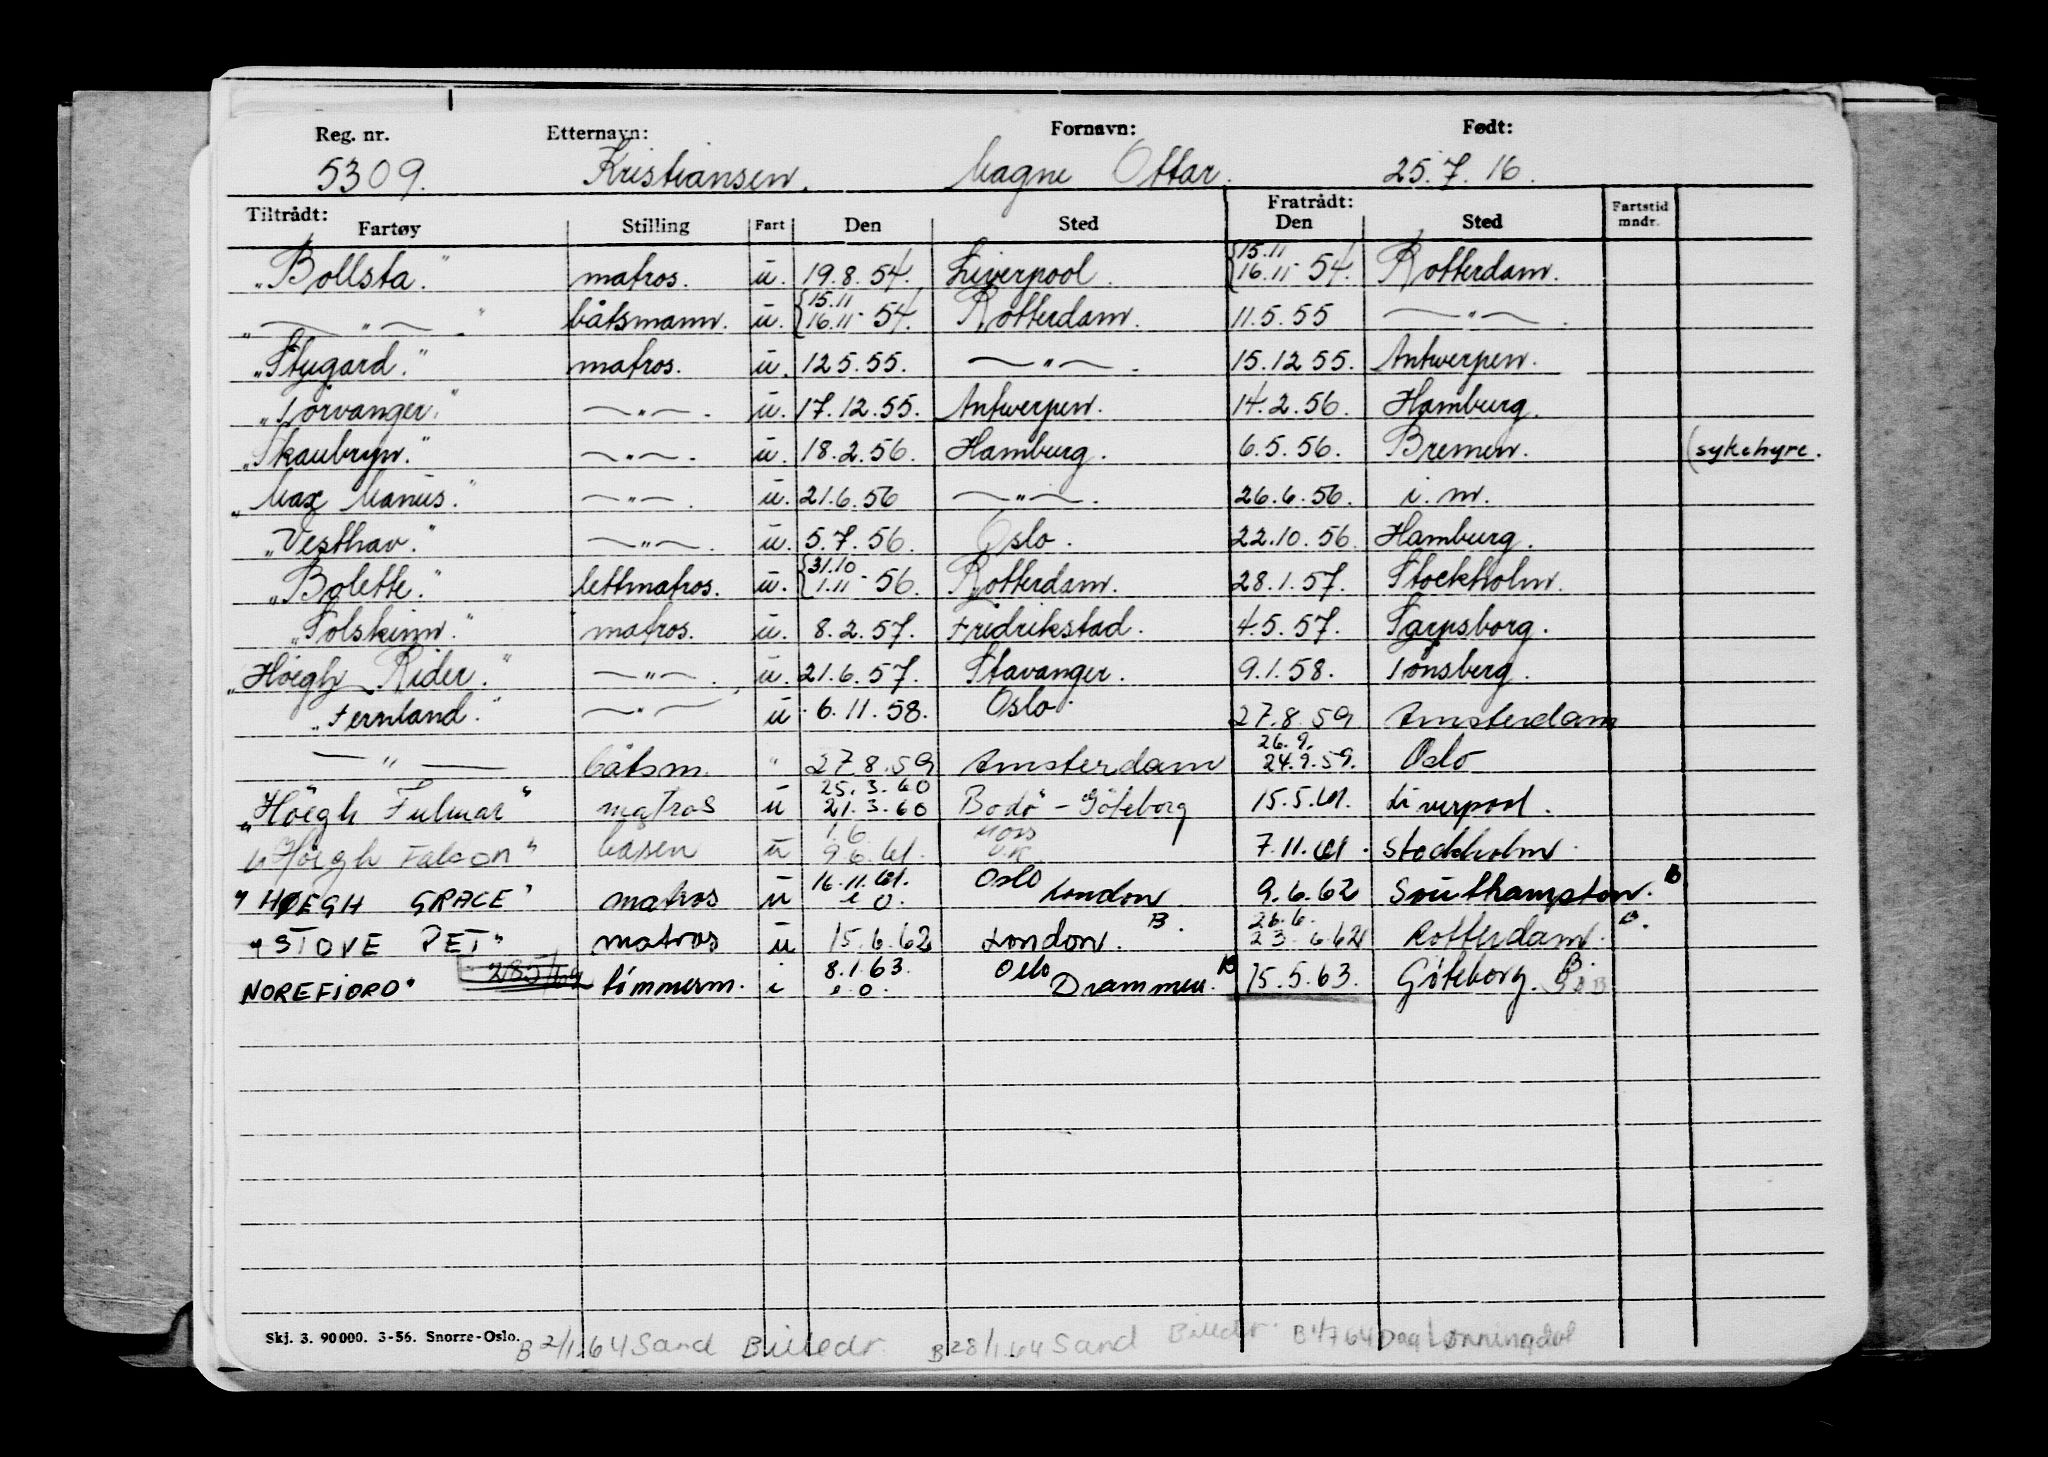 Reg. nr. Etternavn: Fornavn: Født:
5309. Kristiansen. Magne Ottar. 25.7.16.
Tiltrådt: Fratrådt: Fartstid mndr.
Fartøy Stilling Fart Den Sted Den Sted
„Bollsta." matros. u. 19.8.54. Liverpool. {15.11 16.11- 54. Rotterdam.
„—„—." båtsmann. u. {15.11 16.11- 54. Rotterdam. 11.5.55 —„—.
„Stugard." matros. u. 12.5.55. —„—. 15.12.55. Antwerpen.
„Torvanger." —„—. u. 17.12.55. Antwerpen. 14.2.56. Hamburg.
„Skaubryn." —„—. u. 18.2.56. Hamburg. 6.5.56. Bremen. (sykehyre.
„Max Manus." —„—. u. 21.6.56 —„—. 26.6.56. i.m.
„Vesthav." —„—. u. 5.7.56. Oslo. 22.10.56. Hamburg.
„Bolette." lettmatros. u. {31.10 1.11- 56. Rotterdam. 28.1.57. Stockholm.
„Solskinn." matros. u. 8.2.57. Fredrikstad. 4.5.57. Sarpsborg.
„Höegh Rider." —„—. u. 21.6.57. Stavanger. 9.1.58. Tönsberg.
„Fernland." —„— u 6.11.58. Oslo. 27.8.59 Amsterdam
—„— båtsm. " 27.8.59 Amsterdam 26.9. 24.9.59. Oslo
„Höegh Fulmar" matros u 25.3.60 21.3.60 Bodö - Göteborg 15.5.61. Liverpool.
„Höegh Falcon" båsen u 1.6 9.6.61. Moss U.K. 7.11.61. Stockholm.
"HØEGH GRACE" matros u 16.11.61. e.o. Oslo London 9.6.62 Southampton. B
"STOVE PET" matros u 15.6.62 London. B. 26.6. 23.6.62 Rotterdam. B.
NOREFJORD" 285/64 tömmerm. i 8.1.63. e.o. Oslo Drammen. B 15.5.63. Göteborg. B.
Skj. 3. 90000. 3-56. Snorre-Oslo.
B 2/1.64 Sand Billedr. B 28/1.64 Sand Billedr. B 1/7 64 Dag Lønningdal